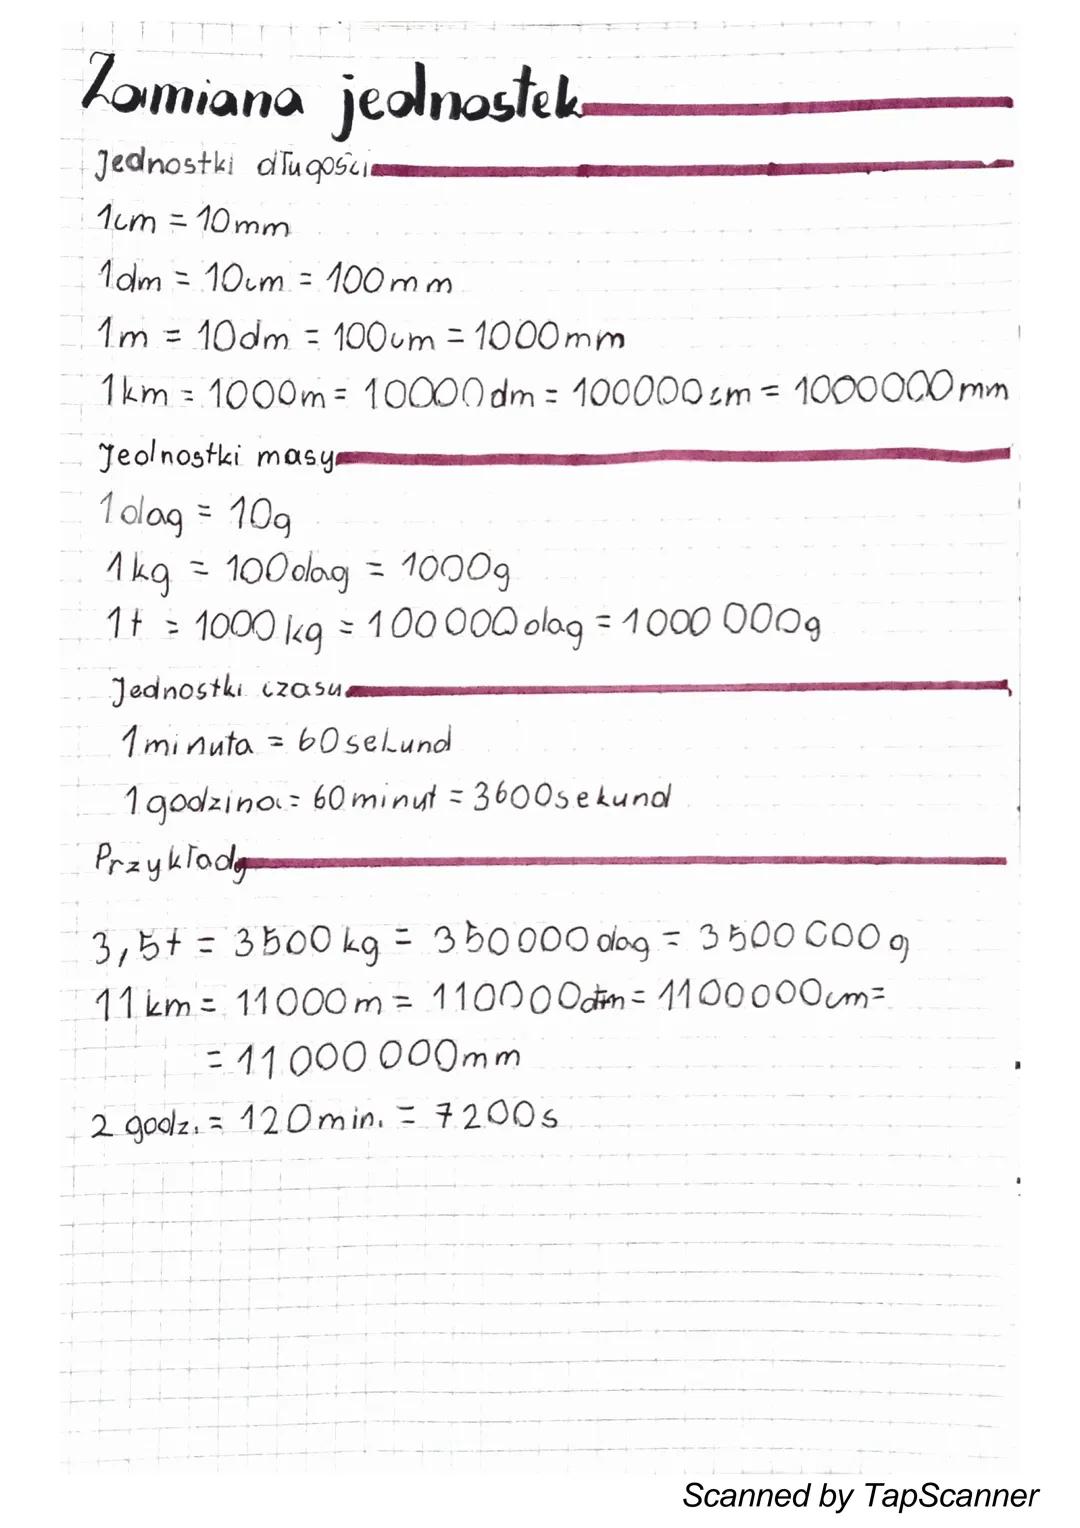 Zamiana jednostek
Jednostki długości
1cm = 10mm
1dm = 10cm = 100mm
1m = 10dm = 100cm = 1000mm
1km = 1000m = 10000dm = 100000cm = 1000000mm
Jednostki masy
1dag = 10g
1kg = 100dag = 1000g
1t = 1000kg = 100000dag = 1000 000g
Jednostki czasu
1minuta = 60sekund
1godzina = 60minut = 3600sekund
Przykłady
3,5t = 3500kg = 350000dag = 3500 000g
11km = 11000m = 110000dm = 1100000cm=
= 11 000 000mm
2 godz. = 120min. = 7200s
Scanned by TapScanner